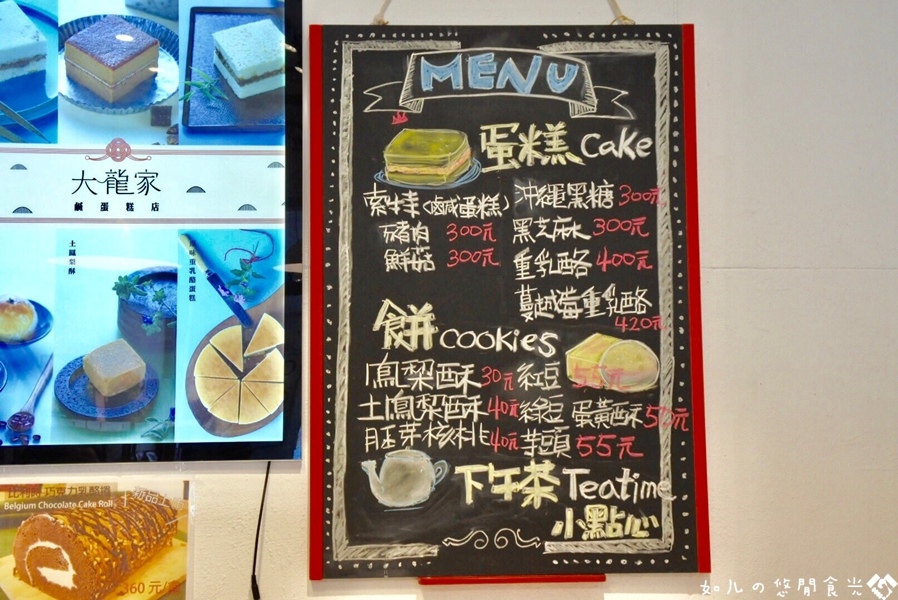 MENU
蛋糕 Cake
索性(鹹蛋糕)
豬肉 300元
鮮菇 300元
沖繩黑糖 300元
黑芝麻 300元
重乳酪 400元
蔓越莓重乳酪
420元
餅 cookies
鳳梨酥 30元
土鳳梨酥 40元
胚芽核桃 40元
紅豆 55元
綠豆蛋黃酥 50元
芋頭 55元
下午茶 Teatime
小點心
大龍家
鹹蛋糕店
土鳳梨酥
重乳酪蛋糕
Belgium Chocolate Cake Roll
360元/
如儿の悠閒食光